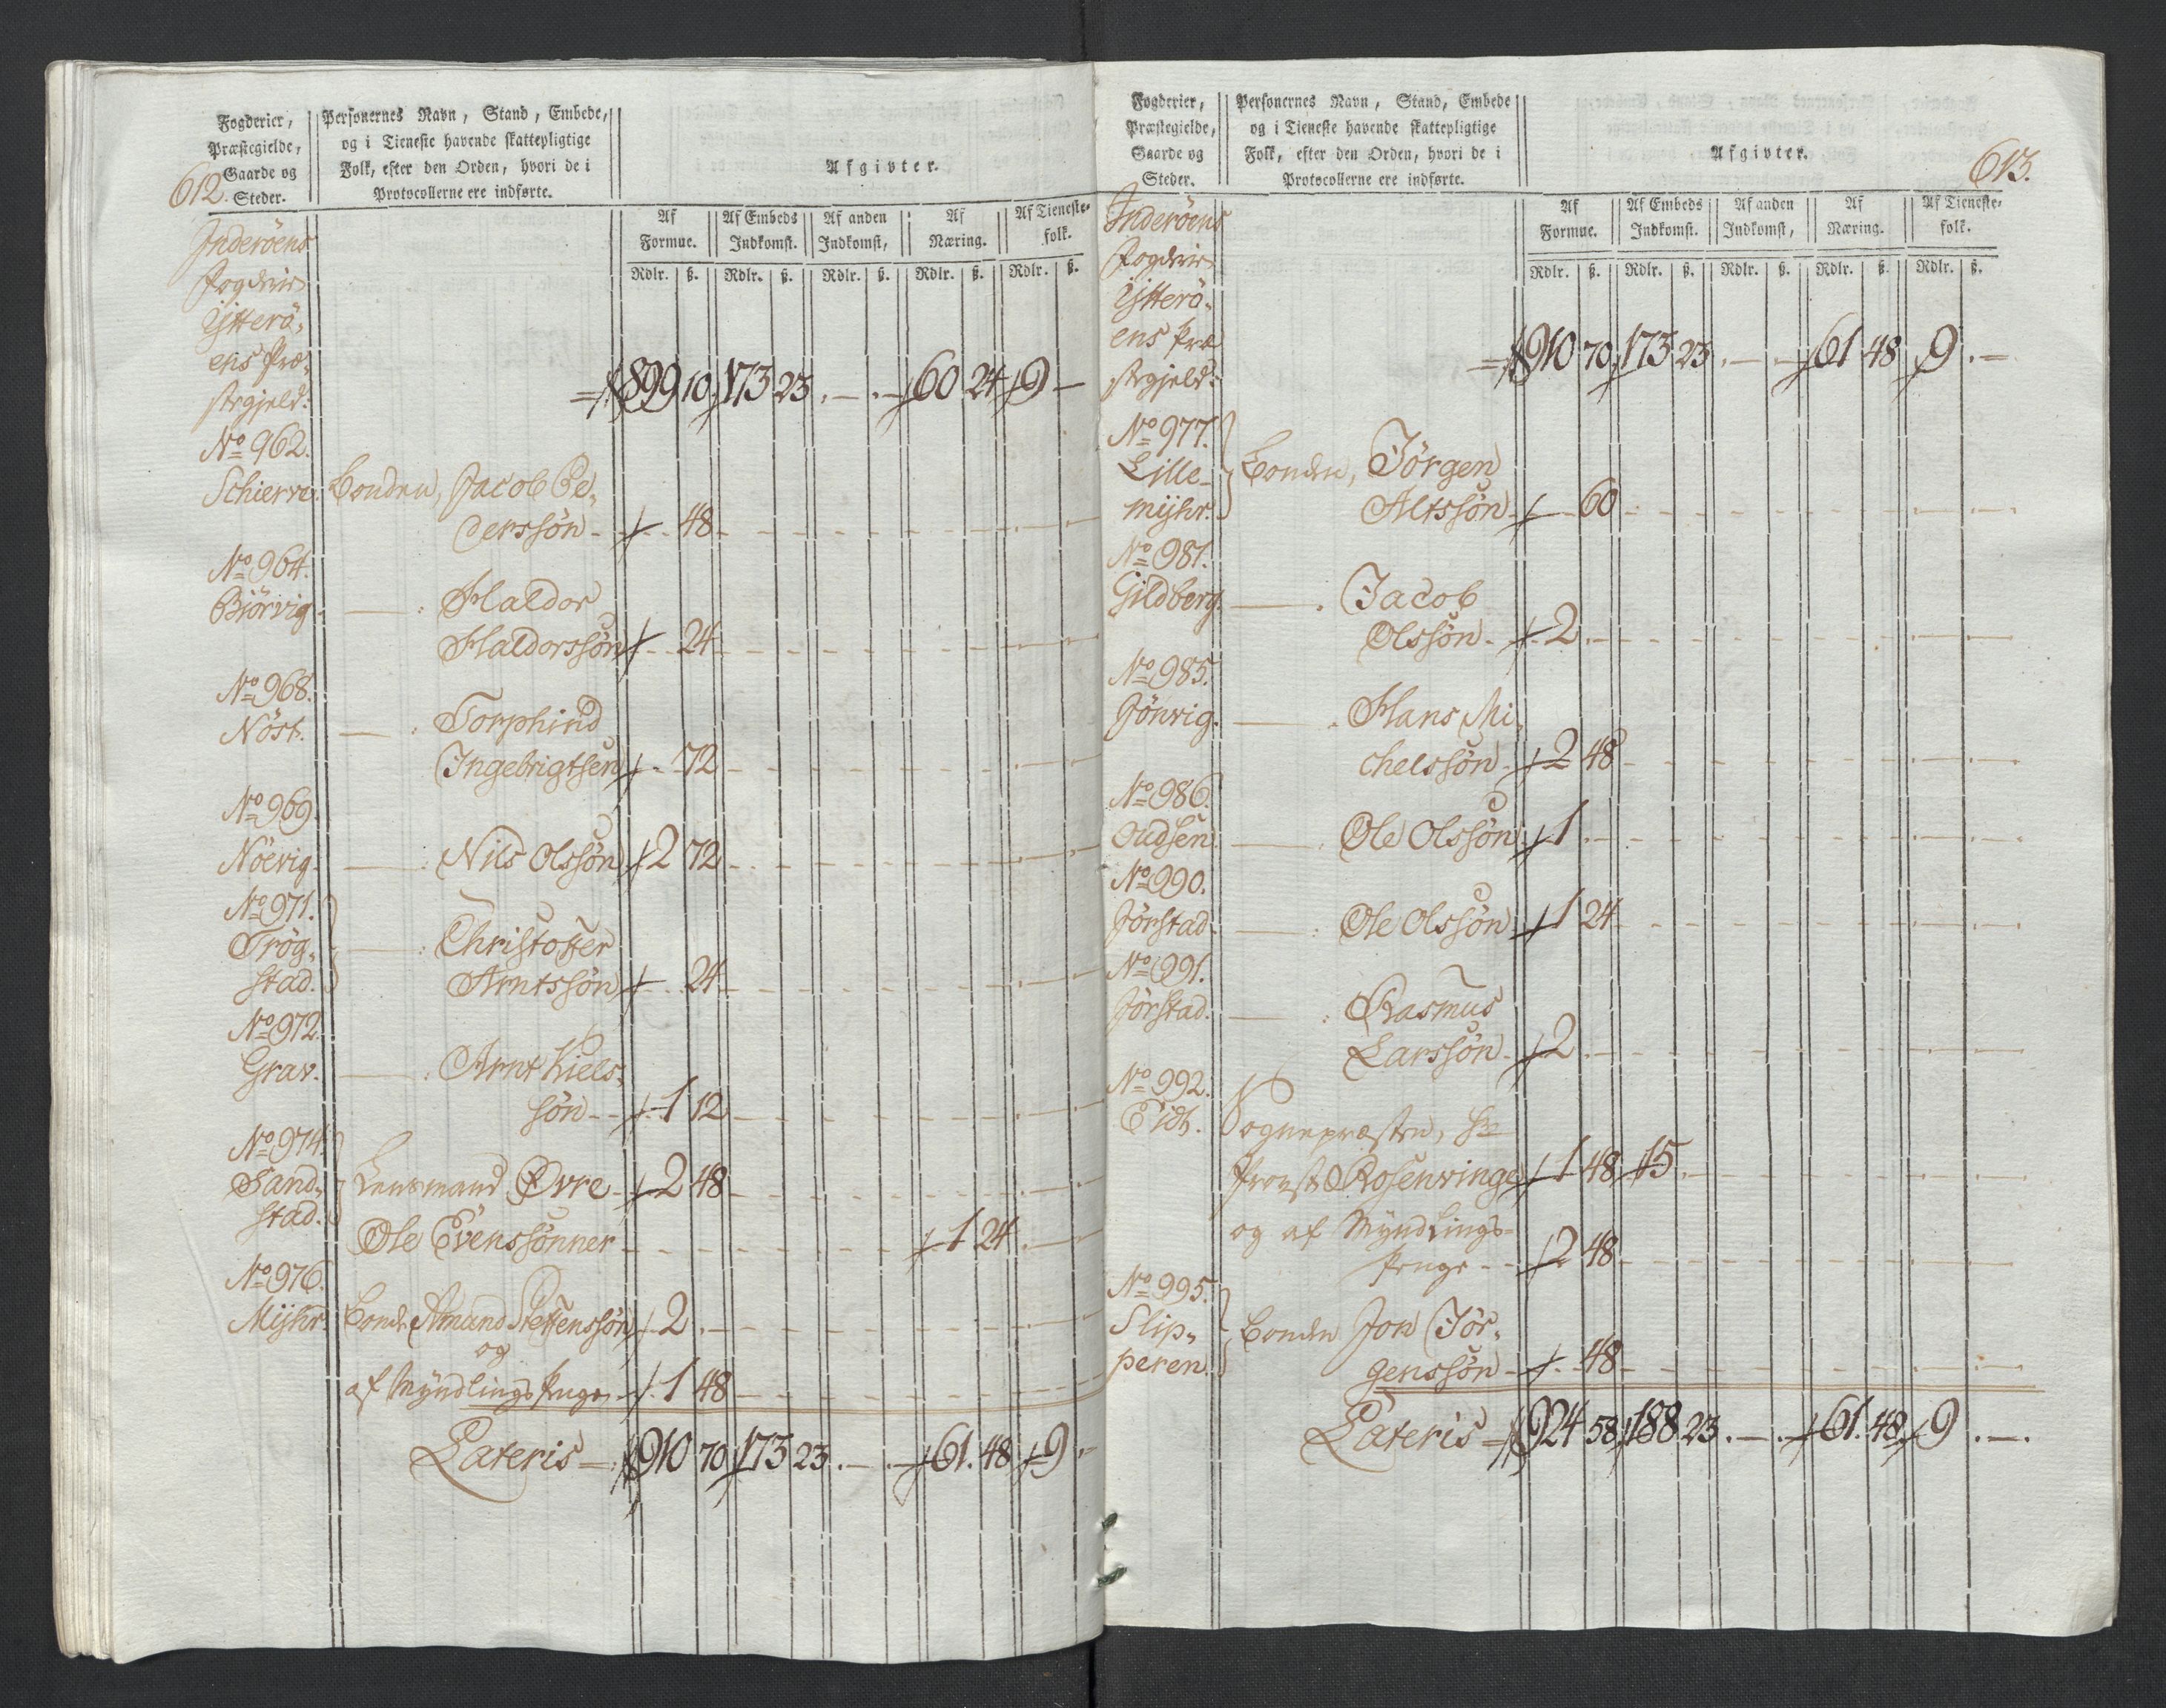 612.
Fogderier,
Præstegielde,
Gaarde og
Steder.
Personernes Navn, Stand, Embede,
og i Tieneste havende skattepligtige
Folk, efter den Orden, hvori de i
Protocollerne ere indførte.
Afgivter.
Af Formue. Af Embeds Indkomst. Af anden Indkomst, Af Næring. Af Tieneste-folk.
Rdlr. ß. Rdlr. ß. Rdlr. ß. Rdlr. ß. Rdlr. ß.
Inderöens
Fogderie
Ytterö,
ens Præ,
stegjeld:
899 10 173 23 . — . — 60 24 9 —
No 962.
Schierve. Bonden, Jacob Pe,
derssön - 48
No 964.
Biörvig — : Haldor
Haldorssön 24
No 968.
Nöst. — : Torphind
Ingebrigtsen 72
No 969.
Nöevig. — : Nils Olssön 2 72
No 971.
Trög, — : Christoffer
stad. Arntssön 24
No 972.
Grav. — : Arnt Kiels,
sön - - 1 12
No 974.
Sand, Lensmand Øvre 2 48
stad.
Ole Evenssönner 1 24
No 976.
Mijhr. Bonde Amund Steffenssön 2
og
af Myndlings Penge 1 48
Lateris = 910 70 173 23 . — . — 61. 48 9 . —
613.
Fogderier,
Præstegielde,
Gaarde og
Steder.
Personernes Navn, Stand, Embede
og i Tieneste havende skattepligtige
Folk, efter den Orden, hvori de i
Protocollerne ere indførte.
Afgivter.
Af Formue. Af Embeds Indkomst. Af anden Indkomst, Af Næring. Af Tieneste-folk.
Rdlr. ß. Rdlr. ß. Rdlr. ß. Rdlr. ß. Rdlr. ß.
Inderöens
Fogderie
Ytterö,
ens Præ
stegjeld:
910 70 173 23 . — . — 61 48 9 . —
No 977.
Lille- Bonden, Jörgen
mijhr. Altssön 60
No 981.
Gildberg. — . Jacob
Olssön - 2
No 985.
Jönvig. — . Hans Mi,
chelssön 2 48
No 986.
Oudsen — : Ole Olssön 1
No 990.
Jörstad. — : Ole Olssön 1 24
No 991.
Jörstad. — : Rasmus
Larssön 2
No 992.
Eid. Sognepræsten, Hr
Provst Rosenvinge 1 48 15
og af Myndlings-
Penge - - 2 48
No 995.
Slip, Bonden Jon Jör,
peren. genssön - 48
Lateris = 924 58 188 23 . — . — 61. 48 9 . — .